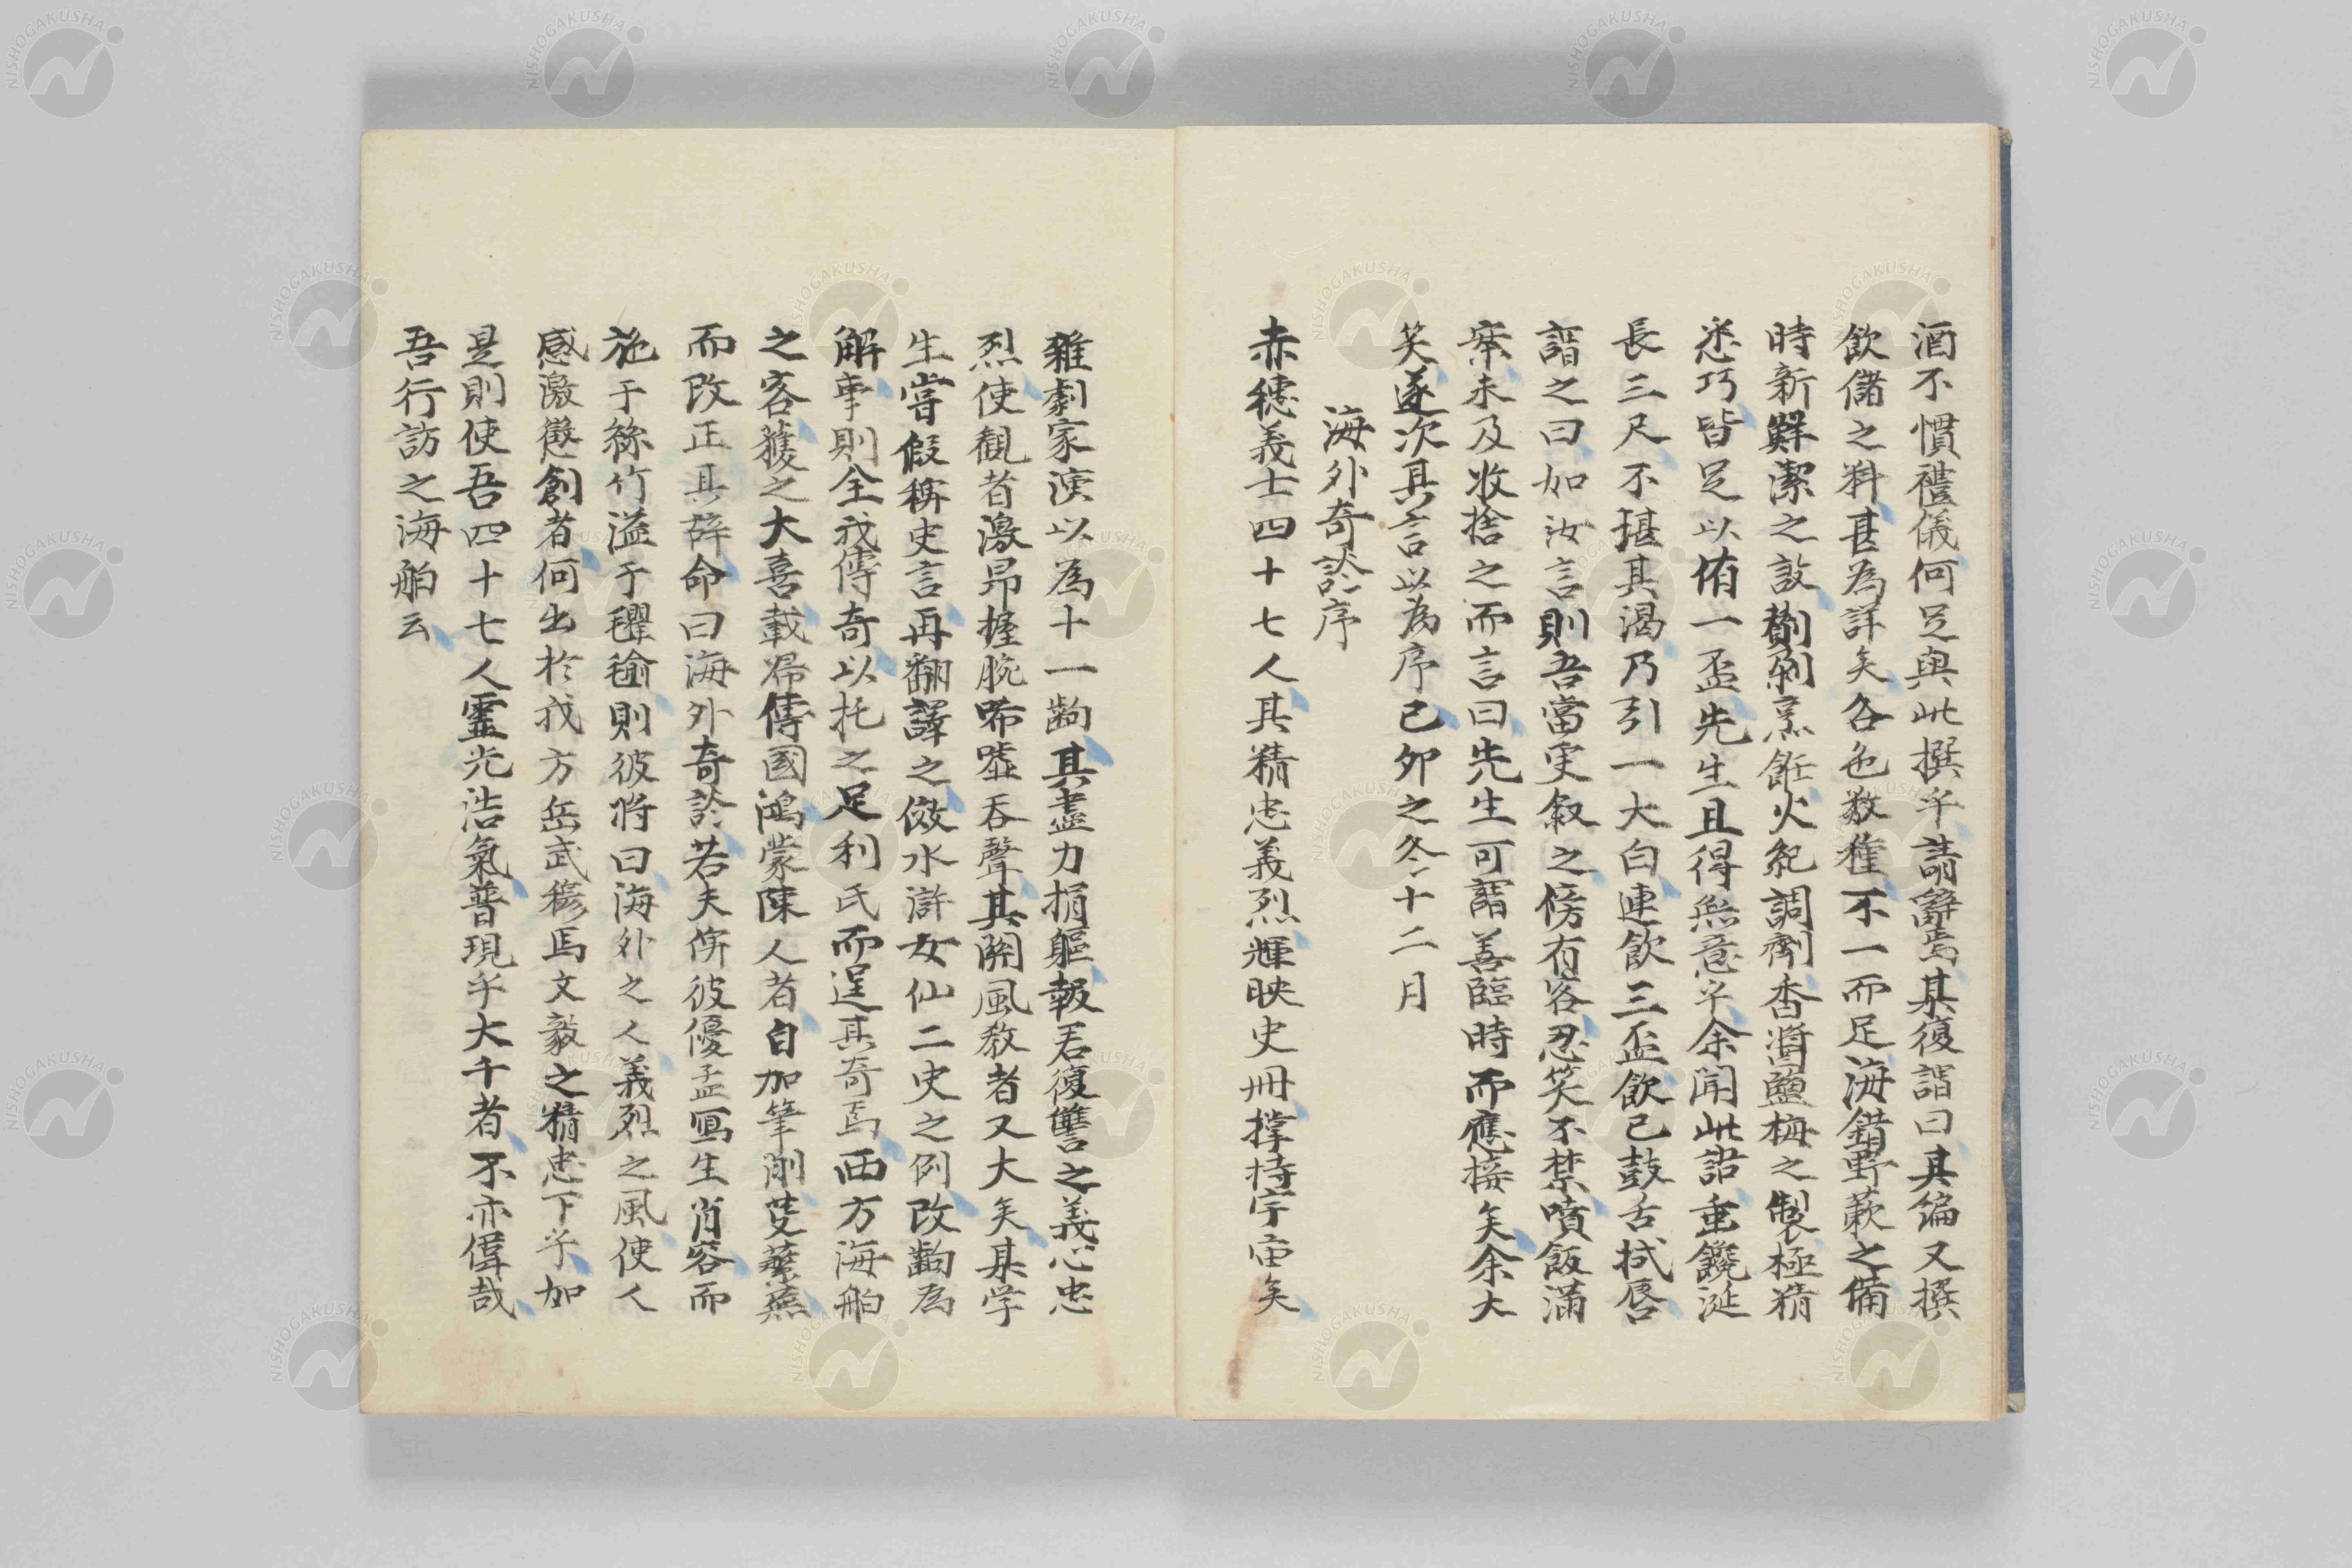 酒不慣禮儀何足與此撰乎請辭焉某復謂曰其編又撰
飲儲之料甚為詳矣各色数種不一而足海錯野蔌之備
時新鮮潔之設割剝烹飪火紀調劑香醬鹽梅之製極精
悉巧皆足以侑一盃先生且得無意乎余聞此語垂饞涎
長三尺不堪其渇乃引一大白連飲三盃飲已鼓舌拭唇
謂之曰如汝言則吾當更叙之傍有客忍笑不禁噴飯滿
案未及收捨之而言曰先生可謂善臨時而應接矣余大
笑遂次其言以為序己卯之冬十二月
海外奇談序
赤穂義士四十七人其精忠義烈輝映史冊撑持宇宙矣
雜劇家演以為十一齣其盡力捐軀報君復讐之義心忠
烈使観者激昻握腕唏嘘呑聲其關風教者又大矣某学
生嘗假稗史言再翻譯之倣水滸女仙二史之例改齣為
解事則全我傳奇以托之足利氏而逞其奇焉西方海舶
之客獲之大喜載帰傳國鴻蒙陳人者自加筆削芟蘩蕪
而改正其辞命曰海外奇談若夫俾彼優孟冩生肖容而
施于絲竹溢于氍毹則彼将曰海外之人義烈之風使人
感激懲創者何出於我方岳武穆馬文毅之精忠下乎如
是則使吾四十七人靈光浩氣普現乎大千者不亦偉哉
吾行訪之海舶云
NISHOGAKUSHA